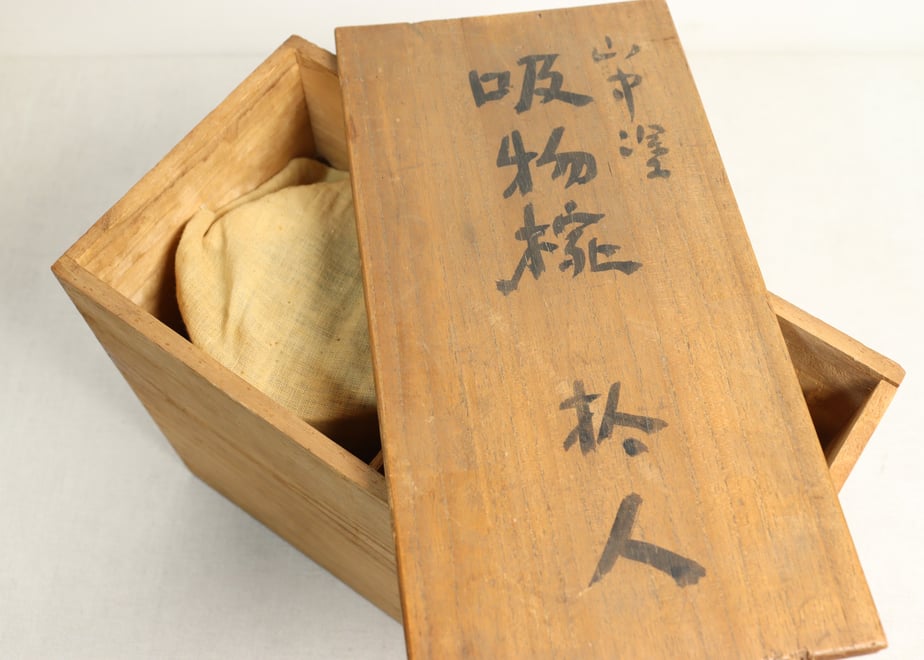 山中塗
吸物椀 拾人